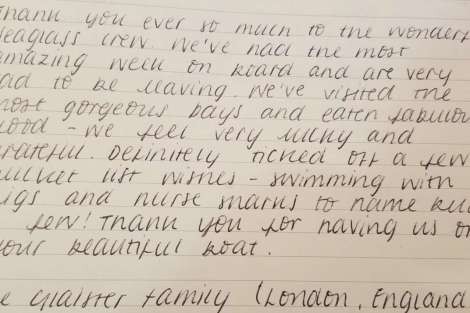 Thank you ever so much to the wonderf
Seaglass crew. We've had the most
amazing week on board and are very
sad to be leaving. We've visited the
most gorgeous bays and eaten fabulou
food - we feel very lucky and
grateful. Definitely ticked off a few
bucket list wishes - swimming with
pigs and nurse sharks to name but
a few! Thank you for having us on
your beautiful boat.
The family (London, England